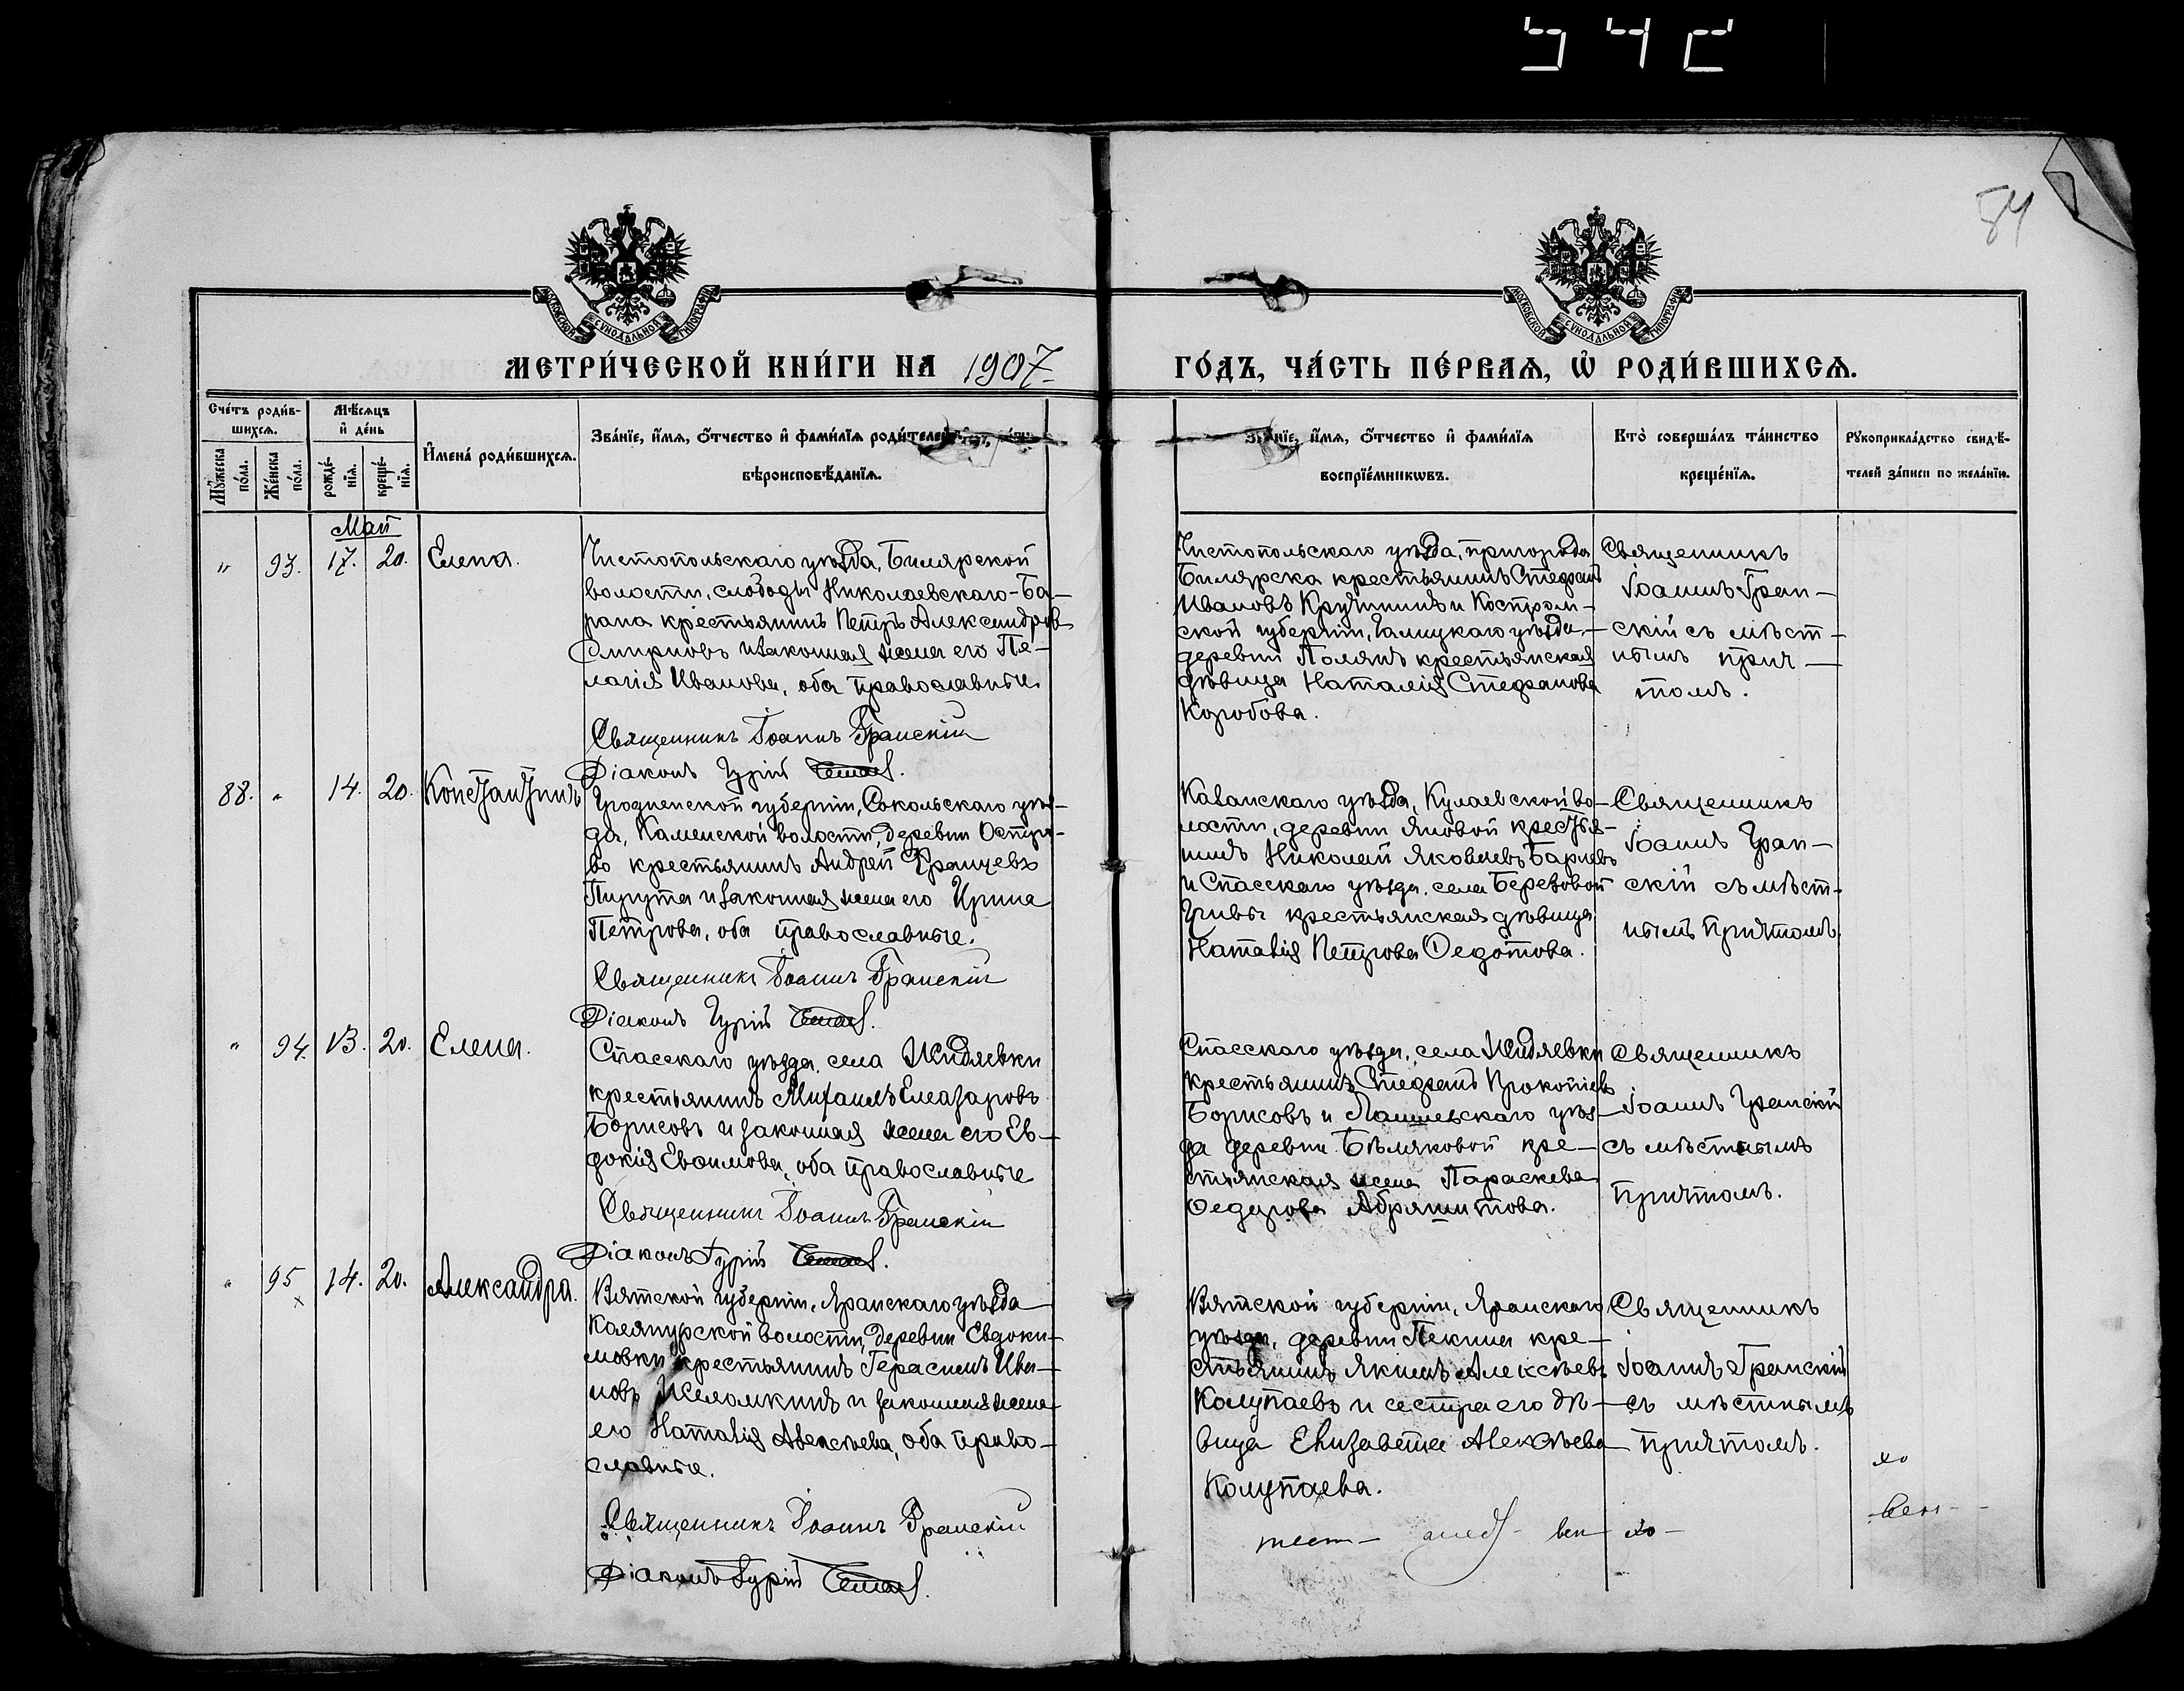 54
МОСКОВСКОЙ СѴНОДАЛЬНОЙ ТИПОГРАФІИ
МОСКОВСКОЙ СѴНОДАЛЬНОЙ ТИПОГРАФІИ
МЕТРИ́ЧЕСКОЙ КНИ́ГИ НА 1907
ГО́ДЪ, ЧА́СТЬ ПЕ́РВАѦ, Ѡ҆ РОДИ́ВШИХСѦ.
Сче́тъ роди́в-
шихсѧ.
Мꙋ́жеска
по́ла.
Же́нска
по́ла.
Мѣ́сѧцъ
и҆ де́нь
рожде́-
нїѧ.
креще́-
нїѧ.
И҆мена̀ роди́вшихсѧ.
Зва́нїе, и҆́мѧ, ѻ҆́тчество и҆ фами́лїѧ роди́телей
вѣроисповѣ́данїѧ.
и҆́мѧ, ѻ҆́тчество и҆ фами́лїѧ
воспрїе́мникѡвъ.
Кто̀ соверша́лъ та́инство
креще́нїѧ.
Рꙋкоприкла́дство свидѣ́-
телей за́писи по жела́нїю.
Май
" 93. 17. 20. Елена.
Чистопольскаго уѣзда, Билярской
волости, слободы Николаевскаго-Ба-
рана крестьянинъ Петръ Александровъ
Смирновъ и законная жена его Пе-
лагія Иванова, оба православные.
Священникъ Іоаннъ Гранскій
Діаконъ Гурій
Чистопольскаго уѣзда, пригорода
Билярска крестьянинъ Стефанъ
Ивановъ Кручининъ и Костром-
ской губерніи, Галицкаго уѣзда
деревни Полянъ крестьянская
дѣвица Наталія Стефанова
Коробова.
Священникъ
Іоаннъ Гран-
скій съ мѣст-
нымъ прич-
томъ.
88. " 14. 20. Константинъ
Гродненской губерніи, Сокольскаго уѣз-
да, Каменской волости, деревни Остро-
во крестьянинъ Андрей Францевъ
Пирута и законная жена его Ирина
Петрова, оба православные.
Священникъ Іоаннъ Гранскій
Діаконъ Гурій
Казанскаго уѣзда, Кулаевской во-
лости, деревни Яновой крестья-
нинъ Николай Яковлевъ Барыевъ
и Спасскаго уѣзда, села Березовой
Гривы крестьянская дѣвица
Наталія Петрова Ѳедотова.
Священникъ
Іоаннъ Гран-
скій съ мѣст-
нымъ причтомъ.
" 94. 13. 20. Елена.
Спасскаго уѣзда, села Жидяевки
крестьянинъ Михаилъ Елеазаровъ
Борисовъ и законная жена его Ев-
докія Евѳимова, оба православные
Священникъ Іоаннъ Гранскій
Діаконъ Гурій
Спасскаго уѣзда, села Жидяевки
крестьянинъ Стефанъ Прокопіевъ
Борисовъ и Лаишевскаго уѣз-
да деревни Бѣляковой кре-
стьянская жена Параскева
Ѳедорова Абрашитова.
Священникъ
Іоаннъ Гранскій
съ мѣстнымъ
причтомъ.
" 95 14. 20. Александра.
Вятской губерніи, Яранскаго уѣзда
Калянурской волости, деревни Евдоки-
мовки крестьянинъ Герасимъ Ива-
новъ Желомкинъ и законная жена
его Наталія Алексѣева, оба право-
славные.
Священникъ Іоаннъ Гранскій
Діаконъ Гурій
Вятской губерніи, Яранскаго
уѣзда, деревни Пекиша кре-
стьянинъ Якимъ Алексѣевъ
Колупаевъ и сестра его дѣ-
вица Елизавета Алексѣева
Колупаева.
Священникъ
Іоаннъ Гранскій
съ мѣстнымъ
причтомъ.